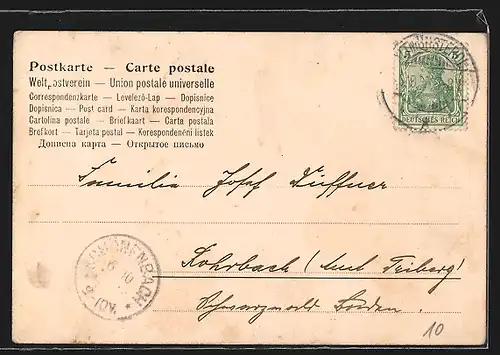 Postkarte — Carte postale
Weltpostverein — Union postale universelle
Correspondenzkarte — Levelező-Lap — Dopisnice
Dopisnica — Post card — Karta korespondencyjna
Cartolina postale — Briefkaart — Carta postala
Brefkort — Tarjeta postal — Korespondenční listek
Дописна карта — Открытое письмо
DEUTSCHES REICH
Familie Josef
Rohrbach (Amt Triberg)
Schwarzwald Baden
10